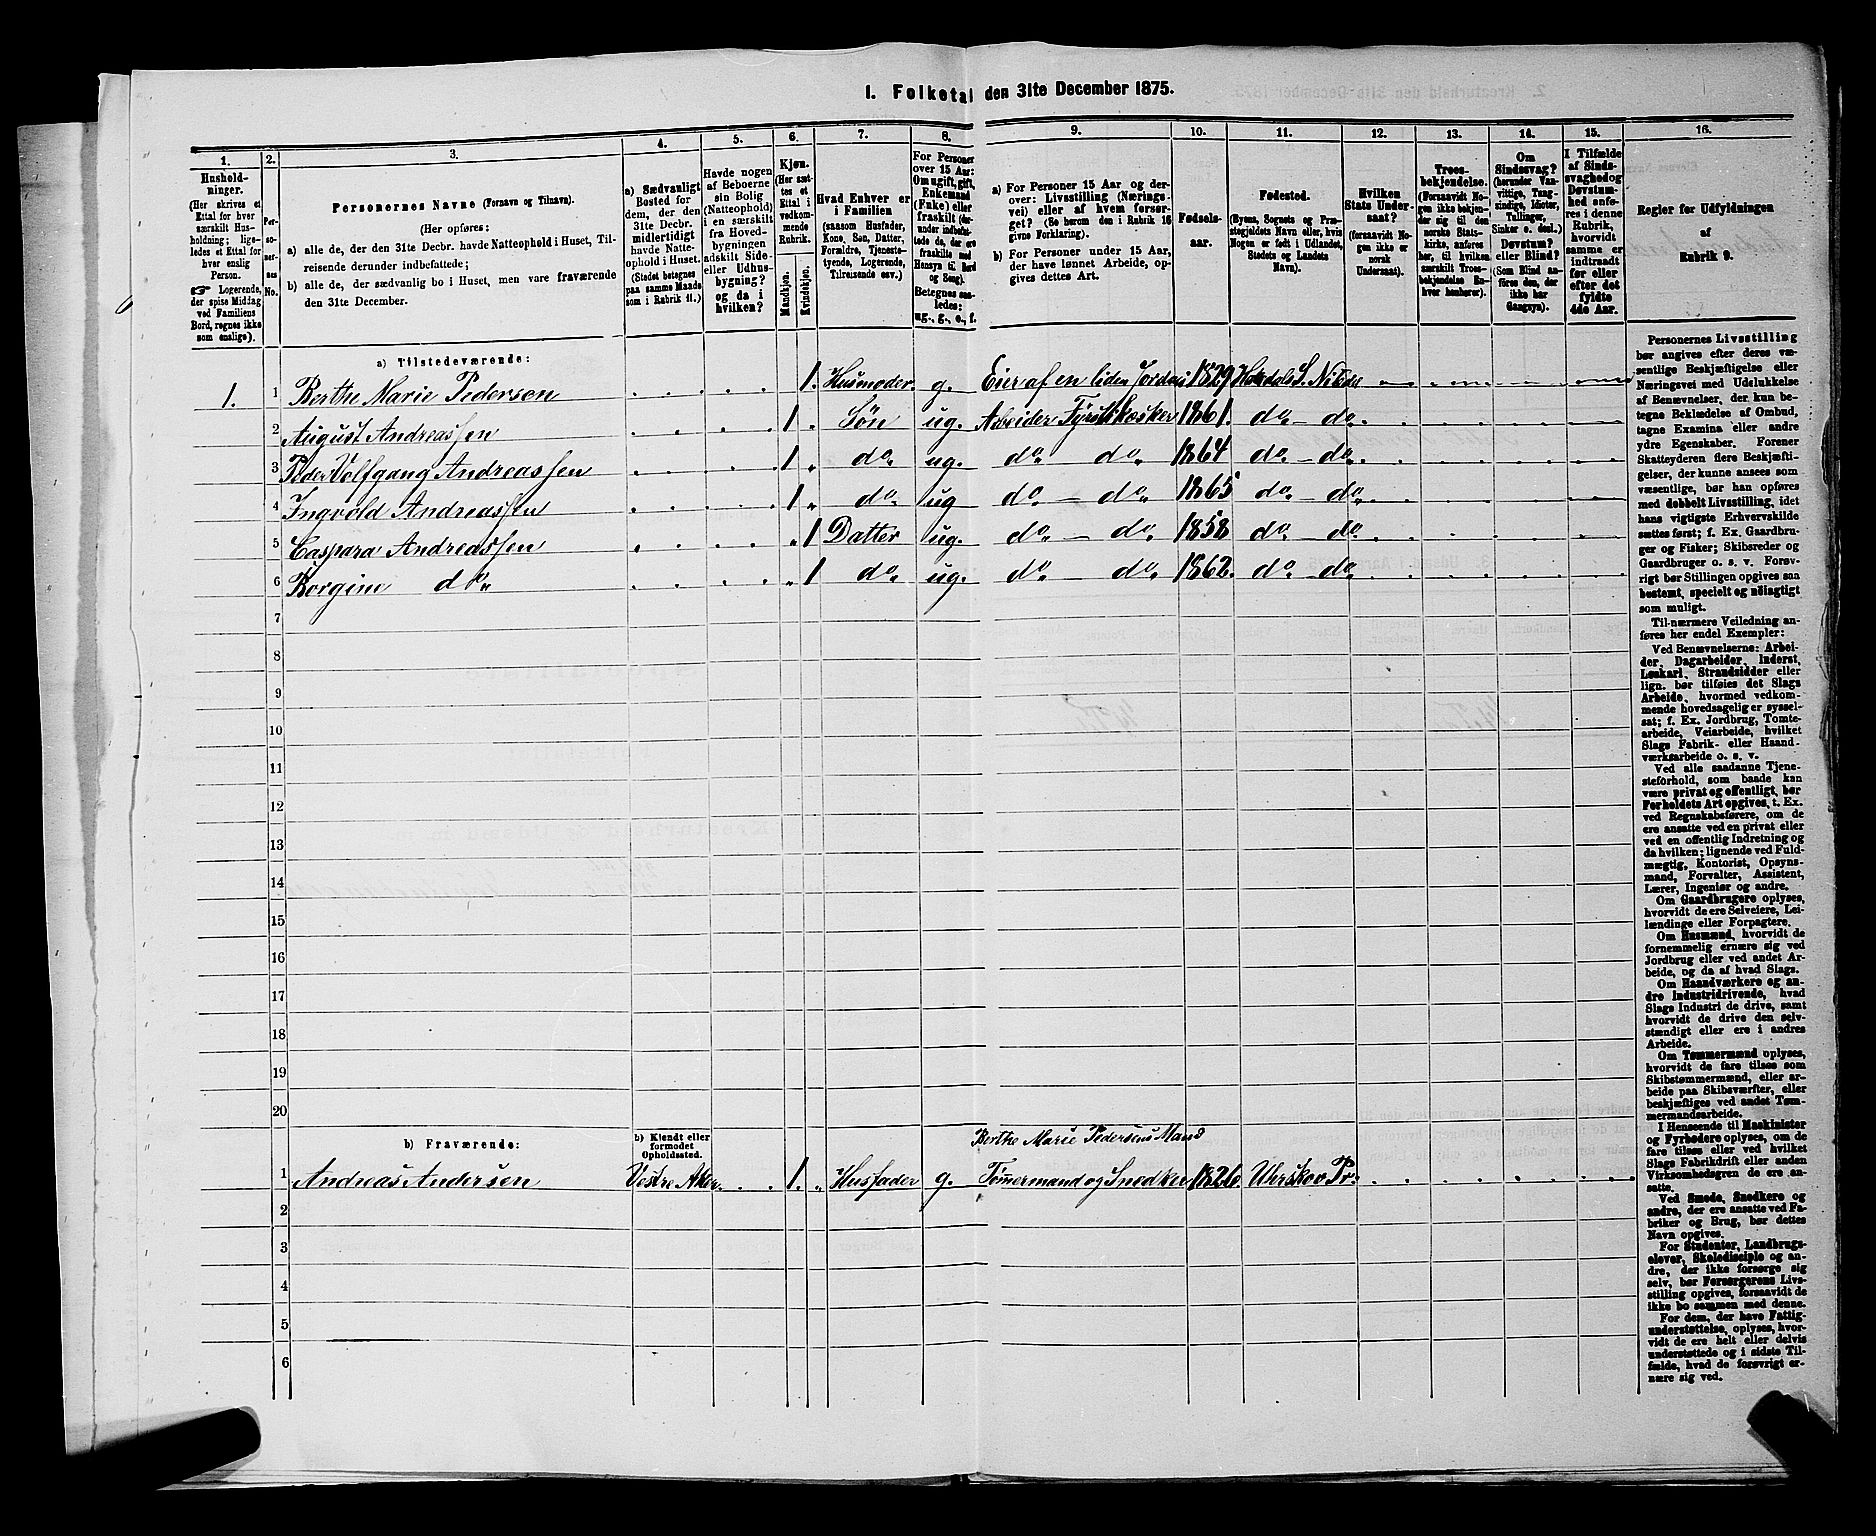 I. Folketal den 31te December 1875.
1. 2. 3. 4. 5. 6. 7. 8. 9. 10. 11. 12. 13. 14. 15. 16.
Hushold-
ninger.
(Her skrives et
Ettal for hver
særskilt Hus-
holdning; lige-
ledes et Ettal for
hver enslig
Person.
☞ Logerende,
der spise Middag
ved Familiens
Bord, regnes ikke
som enslige).
Per-
so-
ner-
nes
No.
Personernes Navne (Fornavn og Tilnavn).
(Her opføres:
a) alle de, der den 31te Decbr. havde Natteophold i Huset, Til-
reisende derunder indbefattede;
b) alle de, der sædvanlig bo i Huset, men vare fraværende
den 31te December.
a) Sædvanligt
Bosted for
dem, der den
31te Decbr.
midlertidigt
havde Natte-
ophold i Huset.
(Stedet betegnes
paa samme Maade
som i Rubrik 11.)
Havde nogen
af Beboerne
sin Bolig
(Natteophold)
i en særskilt
fra Hoved-
bygningen
adskilt Side-
eller Udhus-
bygning?
og da i
hvilken?
Kjøn.
(Her sæt-
tes et
Ettal i
vedkom-
mende
Rubrik.
Mandkjøn.
Kvindekjøn.
Hvad Enhver er
i Familien
(saasom Husfader,
Kone, Søn, Datter,
Forældre, Tjeneste-
tyende, Logerende,
Tilreisende osv.)
For Personer
over 15 Aar:
Om ugift, gift,
Enkemand
(Enke) eller
fraskilt (der-
under indbefat-
tede de, der ere
fraskilte med
Hensyn til Bord
og Seng).
Betegnes saa-
ledes:
ug., g., e., f.
a) For Personer 15 Aar og der-
over: Livsstilling (Nærings-
vei) eller af hvem forsør-
get? (Se herom den i Rubrik 16
givne Forklaring).
b) For Personer under 15 Aar,
der have lønnet Arbeide, op-
gives dettes Art.
Fødsels-
aar.
Fødested.
(Byens, Sognets og Præ-
stegjeldets Navn eller, hvis
Nogen er født i Udlandet,
Stedets og Landets
Navn).
Hvilken
Stats Under-
saat?
(forsaavidt No-
gen ikke er
norsk
Undersaat).
Troes-
bekjendelse.
(Forsaavidt No-
gen ikke bekjen-
der sig til den
norske Stats-
kirke, anføres
her, til hvilken
særskilt Troes-
bekjendelse En-
hver henhører).
Om
Sindssvag?
(herunder Van-
vittige, Tung-
sindige, Idioter,
Tullinger,
Sinker o. desl.)
Døvstum?
eller Blind?
(Som Blind an-
føres den, der
ikke har
Gangsyn).
I Tilfælde
af Sinds-
svaghed og
Døvstum-
hed anfø-
res i denne
Rubrik,
hvorvidt
samme er
indtraadt
før eller
efter det
fyldte
4de Aar.
Regler for Udfyldningen
af
Rubrik 9.
a) Tilstedeværende:
1. 1 Berthe Marie Pedersen 1. Husmoder g. Eier af en liden Jordei 1829
2 August Andreassen 1 Søn ug. Arbeider Fyrstikæsker 1861. do. do.
3 Peder Volfgang Andreassen 1 do. ug. do. do. 1864 do. do.
4 Ingvold Andreassen 1 do. ug do. do. 1865 do. do.
5 Caspara Andreassen 1 Datter ug. do. do. 1858 do. do.
6 Borgine do. 1 do. ug. do. do. 1862. do. do.
7
8
9
10
11
12
13
14
15
16
17
18
19
20
b) Fraværende:
b) Kjendt eller
formodet
Opholdssted.
Berthe Marie Pedersens Mand
1 Andreas Andersen Vestre Aker. 1. Husfader g. Tømermand og Snedker 1826. Uhrskov Pr.
2
3
4
5
6
Personernes Livsstilling
bør angives efter deres væ-
sentlige Beskjæftigelse eller
Næringsvei med Udelukkelse
af Benævnelser, der kun be-
tegne Beklædelse af Ombud,
tagne Examina eller andre
ydre Egenskaber. Forener
Skatteyderen flere Beskjæfti-
gelser, der kunne ansees som
væsentlige, bør han opføres
med dobbelt Livsstilling, idet
hans vigtigste Erhvervskilde
sættes først; f. Ex. Gaardbru-
ger og Fisker; Skibsreder og
Gaardbruger o. s. v. Forøv-
rigt bør Stillingen opgives saa
bestemt, specielt og nøiagtigt
som muligt.
Til nærmere Veiledning an-
føres her endel Exempler:
Ved Benævnelserne: Arbei-
der, Dagarbeider, Inderst,
Løskarl, Strandsidder eller
lign. bør tilføies det Slags
Arbeide, hvormed vedkom-
mende hovedsagelig er syssel-
sat; f. Ex. Jordbrug, Tomte-
arbeide, Veiarbeide, hvilket
Slags Fabrik- eller Haand-
værksarbeide o. s. v.
Ved alle saadanne Tjene-
steforhold, som baade kan
være privat og offentligt, bør
Forholdets Art opgives, t. Ex.
ved Regnskabsførere, om de
ere ansatte ved en privat eller
ved en offentlig Indretning og
da hvilken; lignende ved Fuld-
mægtig, Kontorist, Opsyns-
mand, Forvalter, Assistent,
Lærer, Ingeniør og andre.
Om Gaardbrugere oplyses,
hvorvidt de ere Selveiere, Lei-
lændinge eller Forpagtere.
Om Husmænd, hvorvidt de
fornemmelig ernære sig ved
Jordbrug eller ved andet Ar-
beide, og da af hvad Slags.
Om Haandværkere og an-
dre Industridrivende, hvad
Slags Industri de drive, samt
hvorvidt de drive den selv-
stændigt eller ere i andres
Arbeide.
Om Tømmermænd oplyses,
hvorvidt de fare tilsøs som
Skibstømmermænd, eller ar-
beide paa Skibsværfter, eller
beskjæftiges ved andet Tøm-
mermandsarbeide.
I Henseende til Maskinister
og Fyrbødere oplyses, om de
fare tilsøs eller ved hvilket
Slags Fabrikdrift eller anden
Virksomhedsgren de ere an-
satte.
Ved Smede, Snedkere og
andre, der ere ansatte ved Fa-
briker og Brug, bør dettes
Navn opgives.
For Studenter, Landbrugs-
elever, Skoledisciple og an-
dre, der ikke forsørge sig
selv, bør Forsørgerens Livs-
stilling opgives, forsaavidt de
ikke bo sammen med denne.
For dem, der have Fattig-
understøttelse, oplyses, hvor-
vidt de ere helt eller delvis
understøttede og i sidste Til-
fælde, hvad de forøvrigt er-
nære sig ved.